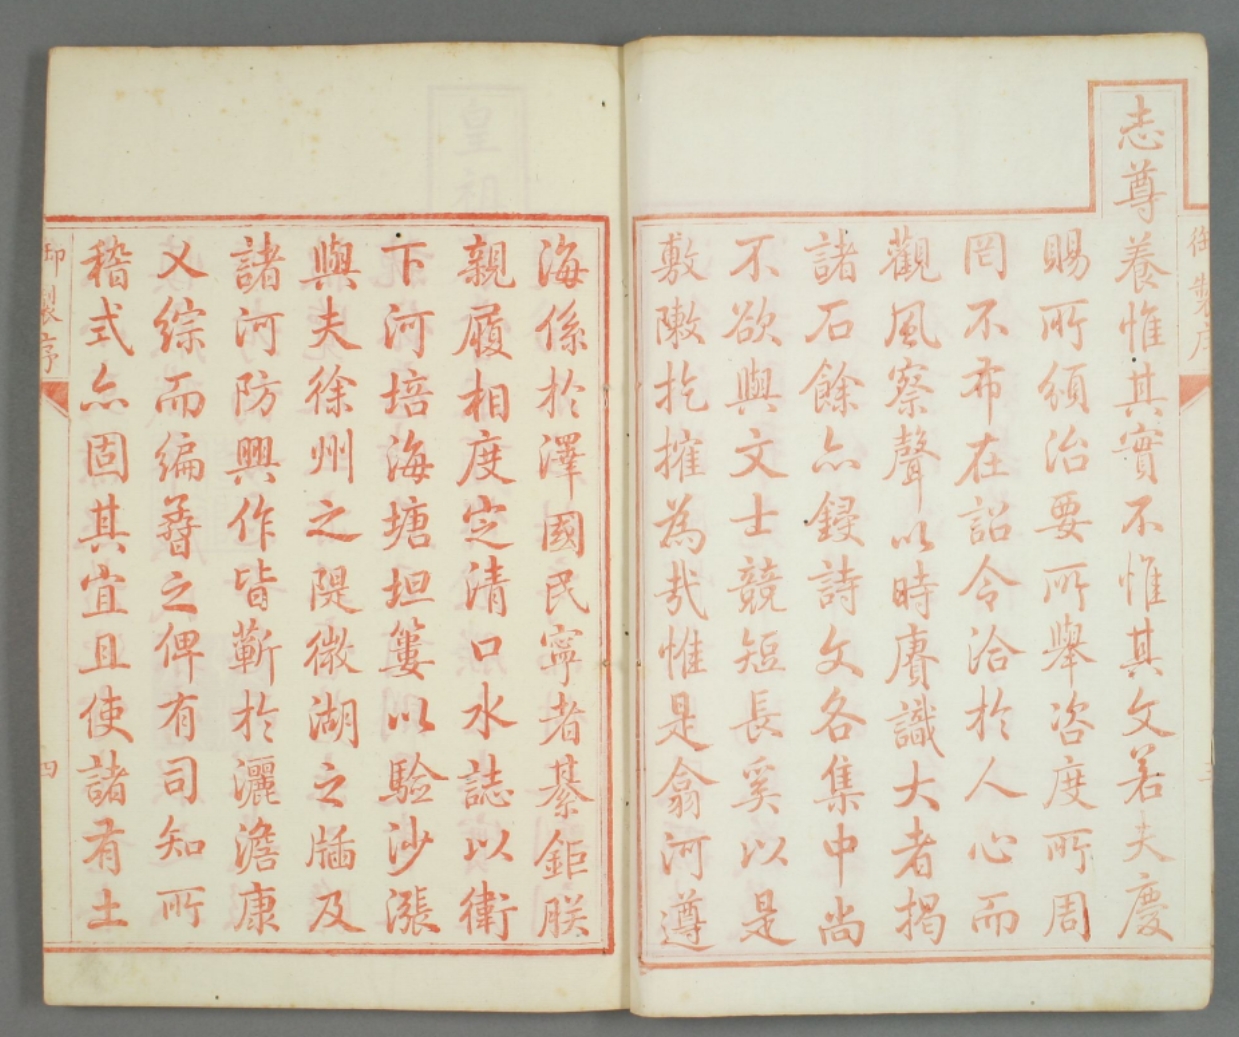 志尊養惟其實不惟其文若夫慶
賜所頒治要所舉咨度所周
罔不布在詔令洽於人心而
觀風察聲以時賡識大者揭
諸石餘亦鋟詩文各集中尚
不欲與文士競短長奚以是
敷陳扢搉為哉惟是翕河遵
海係於澤國民寧者綦鉅朕
親履相度定清口水誌以衛
下河培海塘坦簍以驗沙漲
與夫徐州之隄微湖之牐及
諸河防興作皆蘄於灑澹康
乂綜而編蕣之俾有司知所
稽式亦固其宜且使諸有土
御製序
三
御製序
四
皇祖